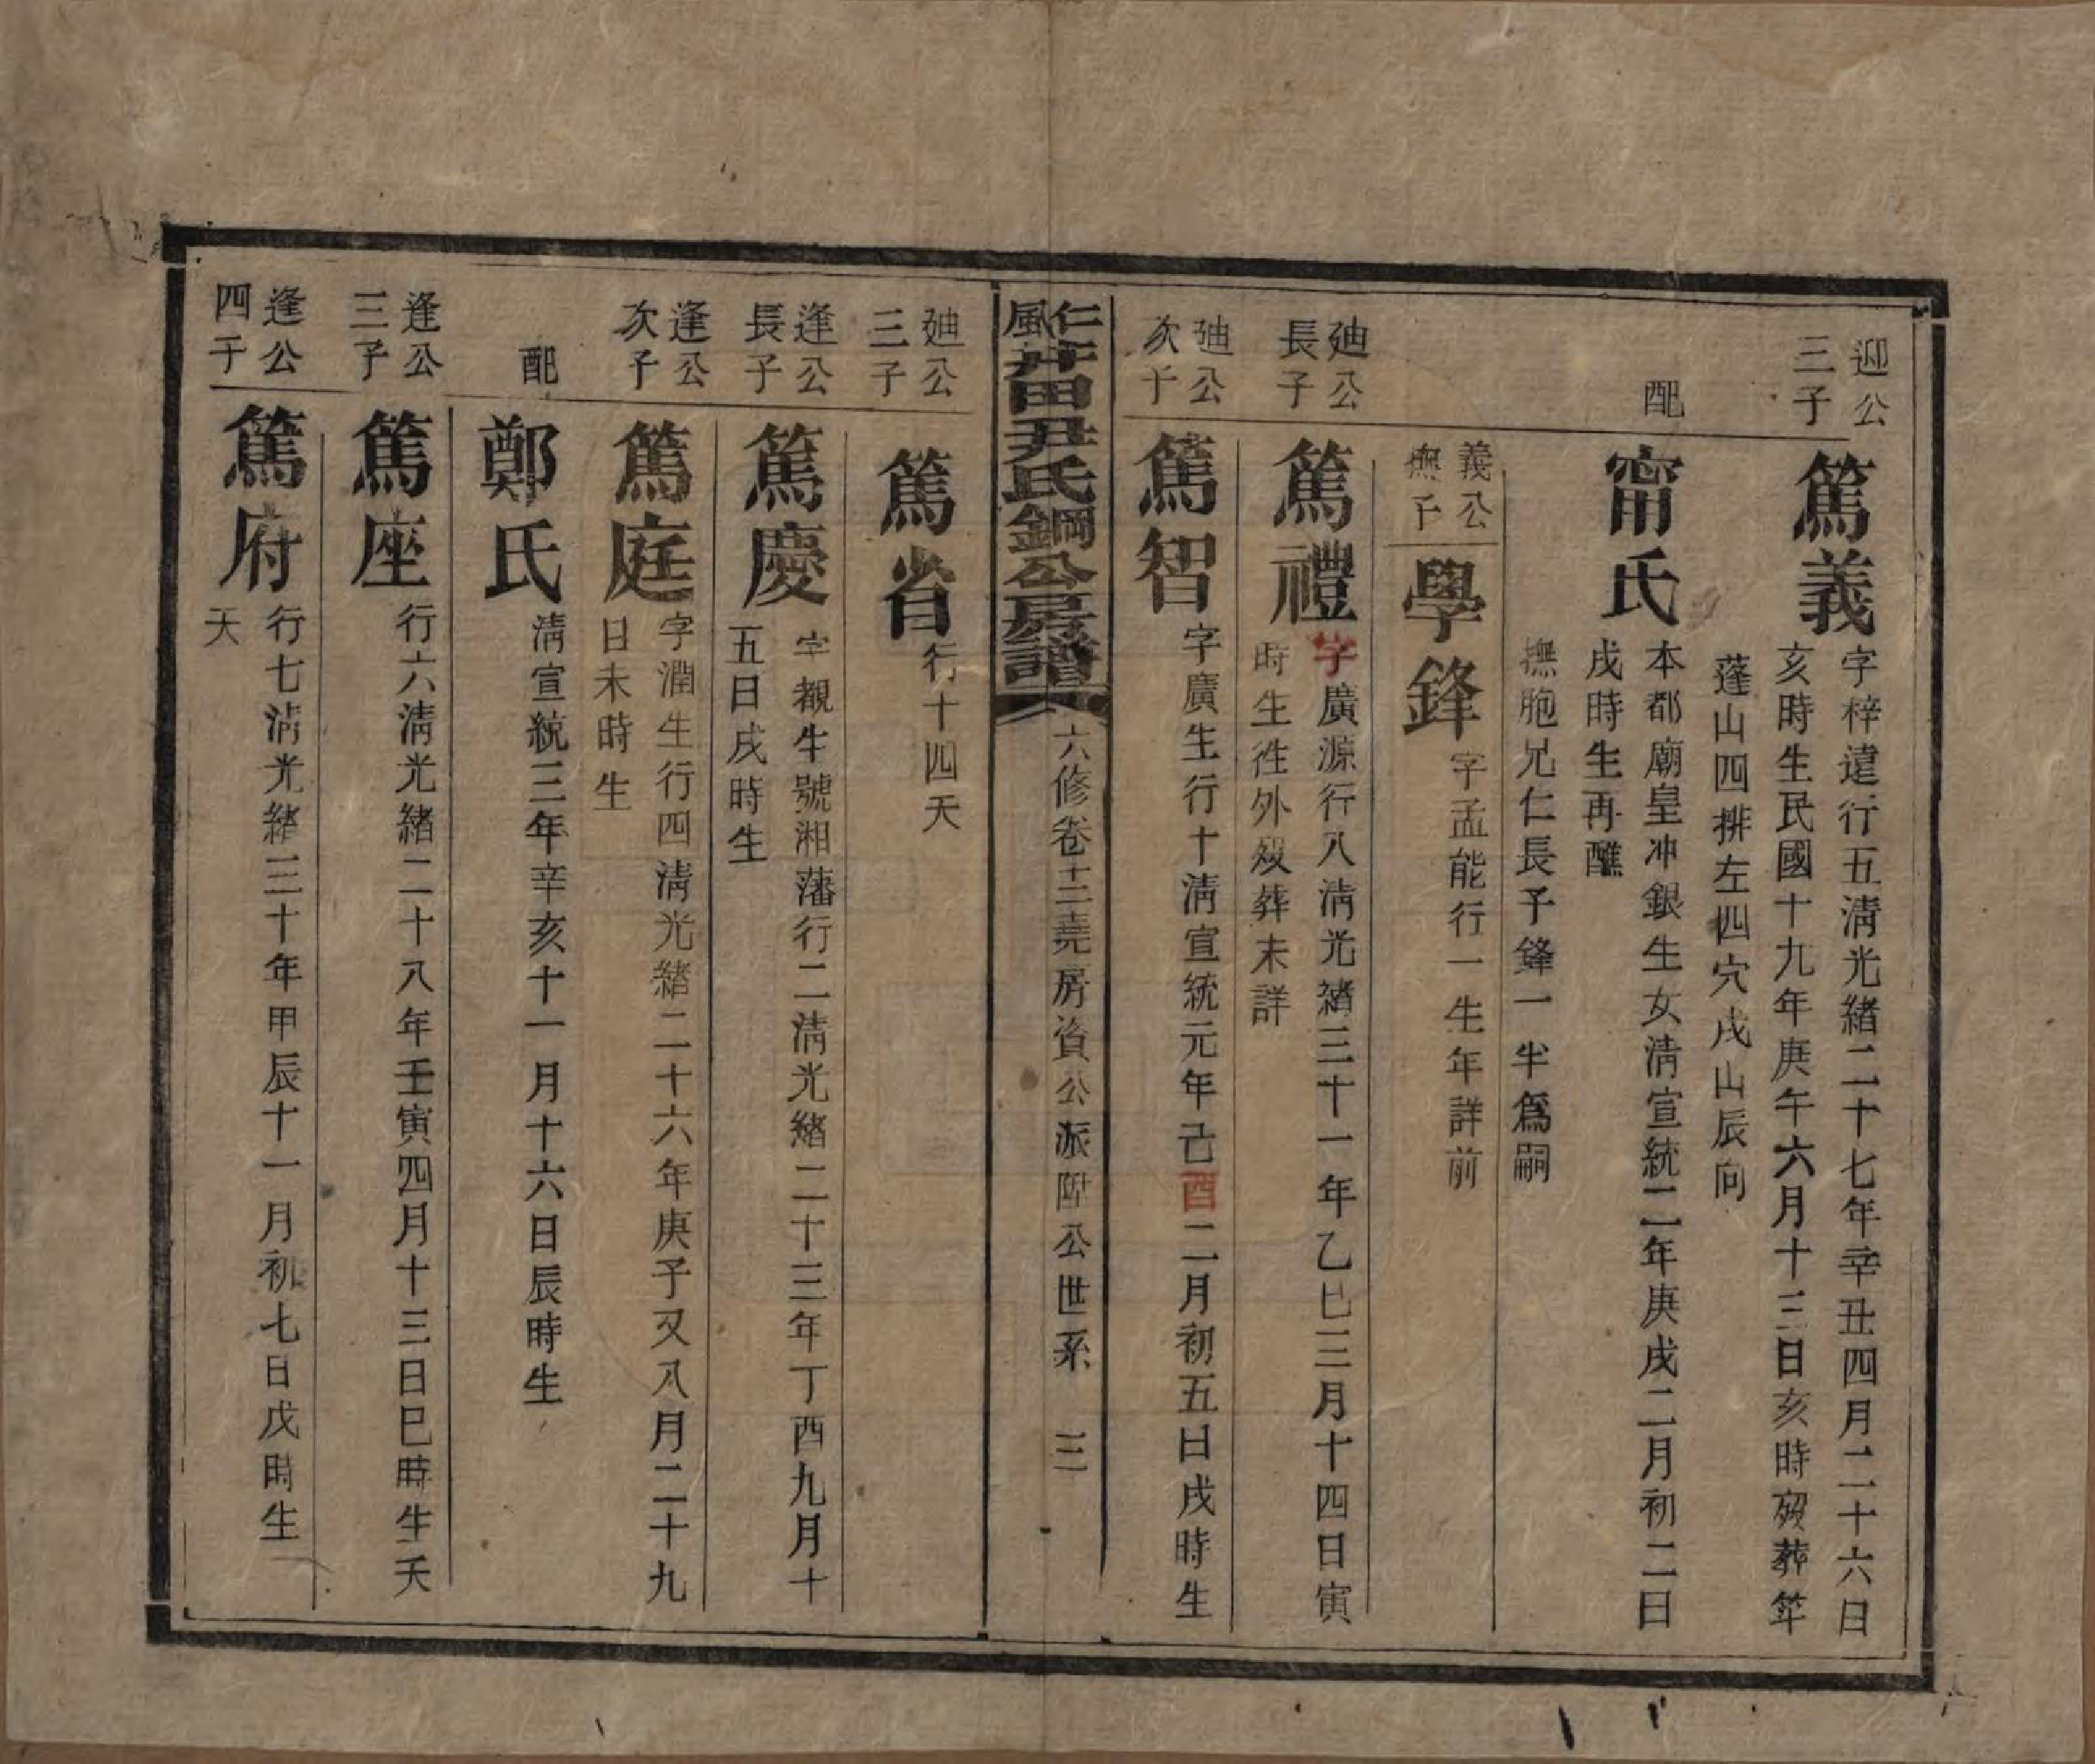 迎公
三子
篤義
字梓違行五淸光緒二十七年辛丑四月二十六日
亥時生民國十九年庚午六月十三日亥時歿葬筓
蓬山四排左四穴戌山辰向
配
甯氏
本都廟皇冲銀生女淸宣統二年庚戌二月初二日
戌時生再醮
撫胞兄仁長子鋒一半爲嗣
義公
撫子
學鋒
字孟能行一生年詳前
廸公
長子
篤禮
字廣源行八淸光緒三十一年乙巳三月十四日寅
時生徃外歿葬未詳
廸公
次子
篤智
字廣生行十淸宣統元年己酉二月初五日戌時生
仁風井田尹氏鋼公房譜
六修卷十二堯房資公派陞公世系 三
廸公
三子
篤省
行十四夭
逢公
長子
篤慶
字觀生號湘藩行二淸光緒二十三年丁酉九月十
五日戌時生
逢公
次子
篤庭
字潤生行四淸光緒二十六年庚子又八月二十九
日未時生
配
鄭氏
淸宣統三年辛亥十一月十六日辰時生
逢公
三子
篤座
行六淸光緒二十八年壬寅四月十三日巳時生夭
逢公
四子
篤府
行七淸光緒三十年甲辰十一月初七日戌時生
夭